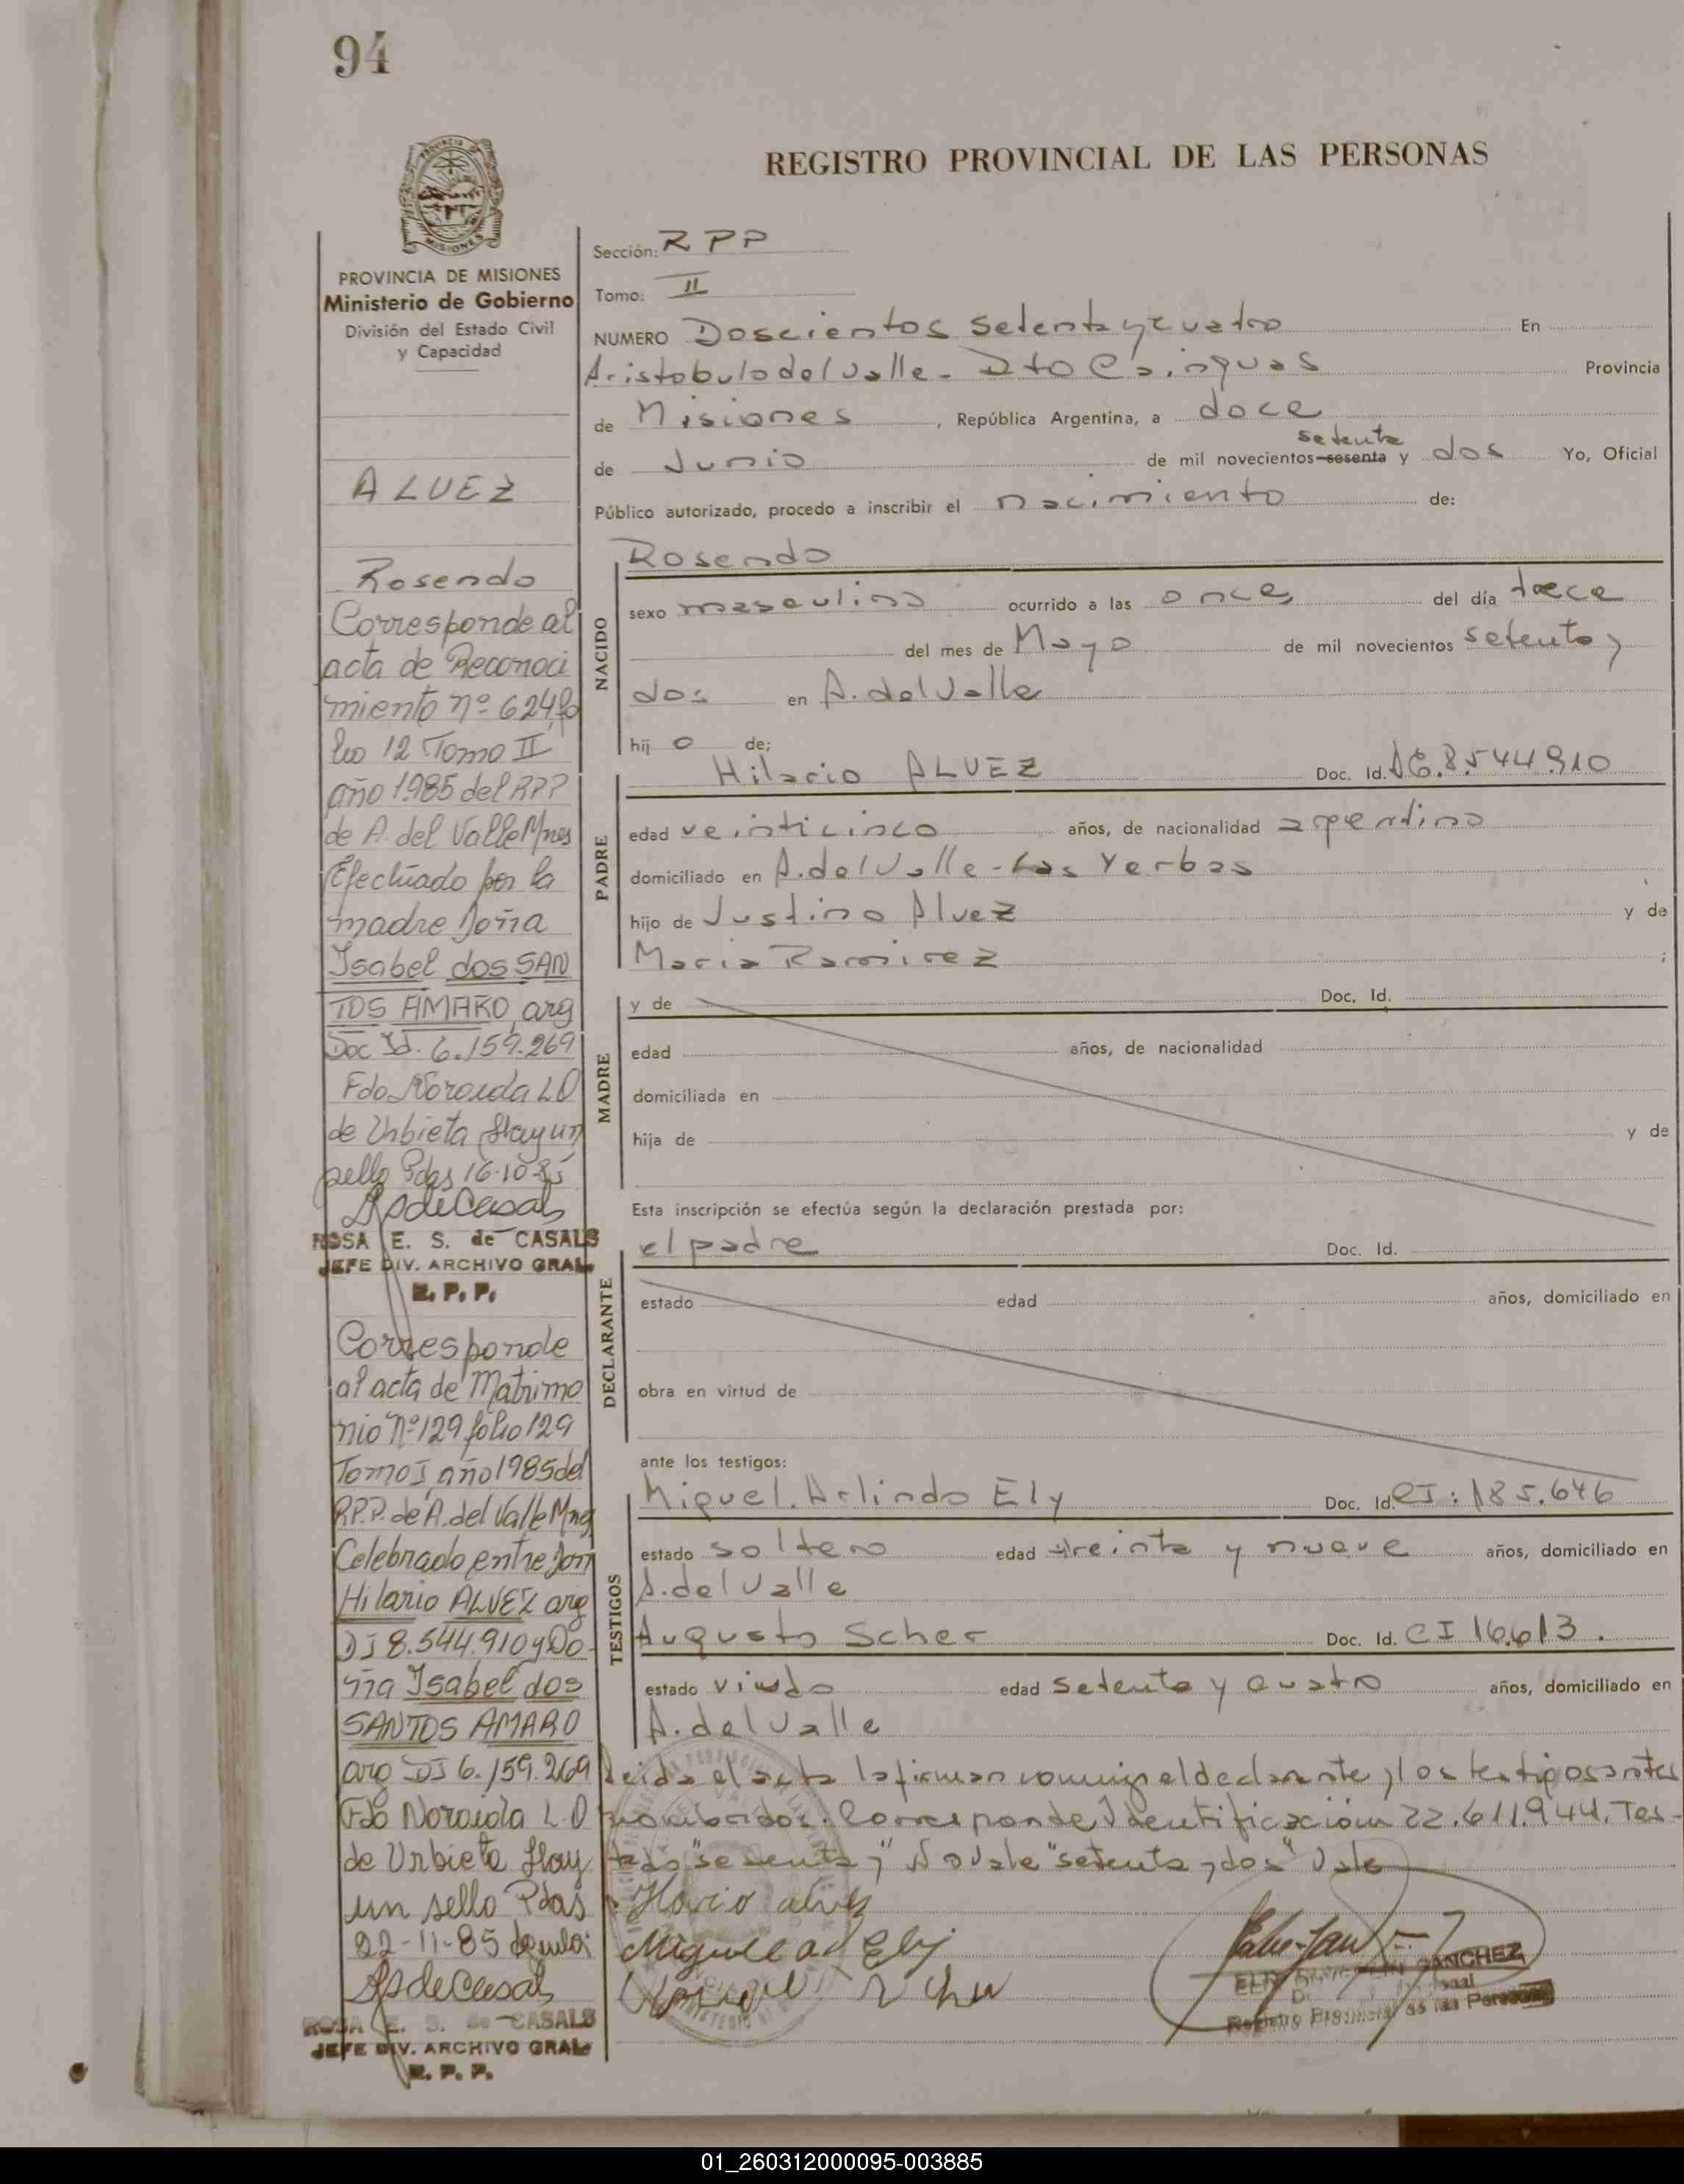 94
REGISTRO PROVINCIAL DE LAS PERSONAS
MISIONES
PROVINCIA DE MISIONES
Ministerio de Gobierno
División del Estado Civil
y Capacidad
ALVEZ
Rosendo
Corresponde al
acta de Reconoci
miento nº 624 fo
lio 12 Tomo II
año 1985 del RPP
de A. del Valle Mnes
Efectuado por la
madre Doña
Isabel dos SAN
TOS AMARO arg
Doc Id. 6.159.269
Fdo Noroida L D
de Urbieta Hay un
sello Pdas 16-10-85
ROSA E. S. de CASALS
JEFE DIV. ARCHIVO GRAL.
R. P. P.
Corresponde
al acta de Matrimo
nio Nº 129 folio 129
Tomo I año 1985 del
R.P.P. de A. del Valle Mnes
Celebrado entre Don
Hilario ALVEZ arg
DI 8.544.910 y Do-
ña Isabel dos
SANTOS AMARO
arg DI 6.159.269
Fdo Noroida L.D
de Urbieta Hay
un sello Pdas
22-11-85
ROSA E. S. de CASALS
JEFE DIV. ARCHIVO GRAL.
R. P. P.
Sección: RPP
Tomo: II
NUMERO Doscientos setenta y cuatro En
Aristobulo del Valle - Dto Cainguas Provincia
de Misiones, República Argentina, a doce
setenta
de Junio de mil novecientos sesenta y dos Yo, Oficial
Público autorizado, procedo a inscribir el nacimiento de:
NACIDO
Rosendo
sexo masculino ocurrido a las once del día trece
del mes de Mayo de mil novecientos setenta y
dos en A. del Valle
hij o de;
PADRE
Hilario ALVEZ Doc. Id. 8.544.910
edad veinticinco años, de nacionalidad argentino
domiciliado en A. del Valle - Las Yerbas
hijo de Justino Alvez y de
Maria Ramirez ;
MADRE
y de Doc. Id.
edad años, de nacionalidad
domiciliada en
hija de y de
Esta inscripción se efectúa según la declaración prestada por:
DECLARANTE
el padre Doc. Id.
estado edad años, domiciliado en
obra en virtud de
ante los testigos:
TESTIGOS
Miguel. Arlindo Ely Doc. Id. CI: 185.646
estado soltero edad treinta y nueve años, domiciliado en
A. del Valle
Augusto Scher Doc. Id. CI 16.613.
estado viudo edad setenta y cuatro años, domiciliado en
A. del Valle
Leida el acta la firman conmigo el declarante y los testigos antes
nombrados. Corresponde Identificación 22.611.944. Tes-
tado "sesenta y" No vale "setenta y dos" Vale
SANCHEZ
Registro Provincial de las Personas
01_260312000095-003885